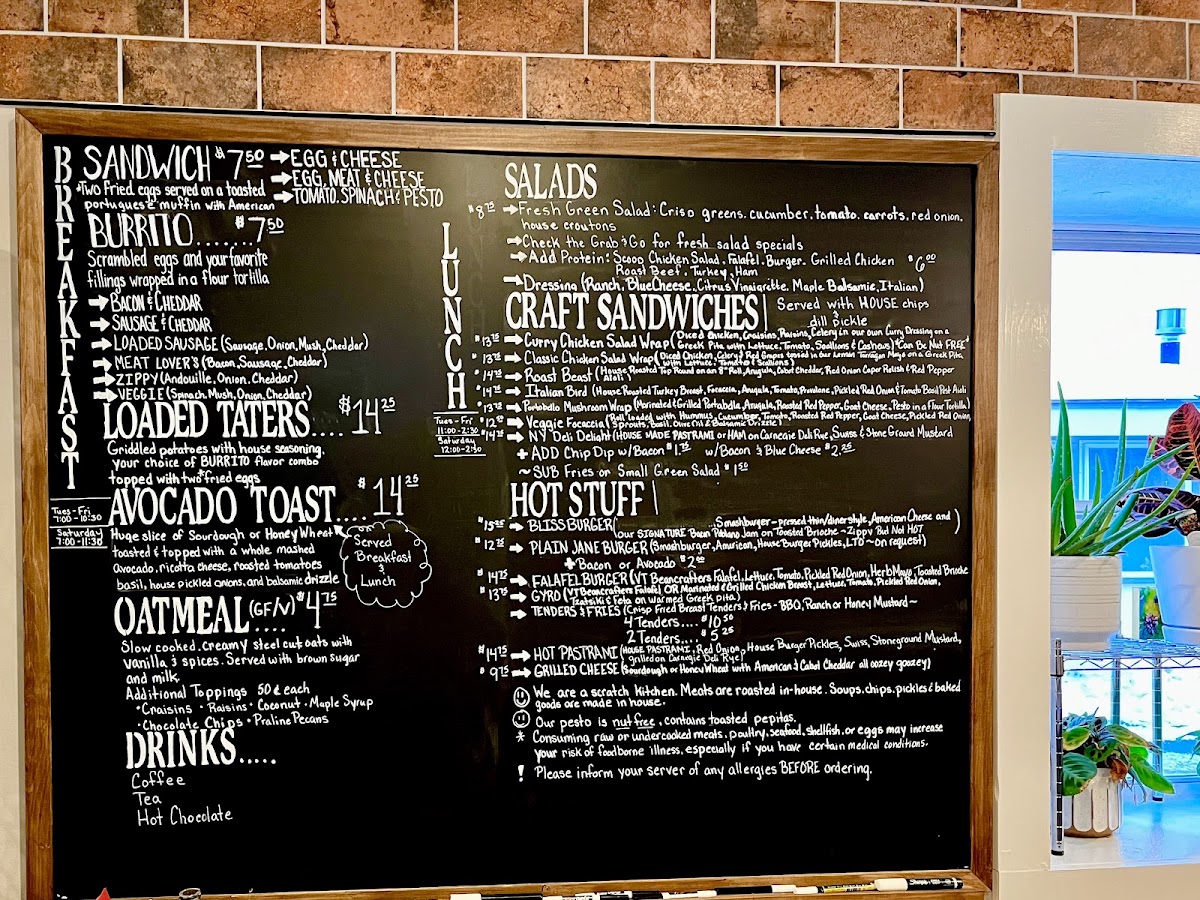 BREAKFAST
SANDWICH $7.50 → EGG & CHEESE
→ EGG, MEAT & CHEESE
→ TOMATO, SPINACH & PESTO
*Two Fried eggs served on a toasted
portuguese muffin with American
BURRITO....... $7.50
Scrambled eggs and your favorite
fillings wrapped in a flour tortilla
→ BACON & CHEDDAR
→ SAUSAGE & CHEDDAR
→ LOADED SAUSAGE (Sausage, Onion, Mush, Cheddar)
→ MEAT LOVER'S (Bacon, Sausage, Cheddar)
→ ZIPPY (Andouille, Onion, Cheddar)
→ VEGGIE (Spinach, Mush, Onion, Cheddar)
LOADED TATERS.... $14.25
Griddled potatoes with house seasoning,
your choice of BURRITO flavor combo
topped with two *fried eggs
Tues - Fri
7:00 - 10:30
Saturday
7:00 - 11:30
AVOCADO TOAST.... $14.25
Huge slice of Sourdough or Honey Wheat
toasted & topped with a whole mashed
avocado, ricotta cheese, roasted tomatoes
basil, house pickled onions, and balsamic drizzle
Served
Breakfast
&
Lunch
OATMEAL (GF/V) $4.75
Slow cooked, creamy steel cut oats with
vanilla & spices. Served with brown sugar
and milk
Additional Toppings 50¢ each
• Craisins • Raisins • Coconut • Maple Syrup
• Chocolate Chips • Praline Pecans
DRINKS.....
Coffee
Tea
Hot Chocolate
LUNCH
Tues - Fri
11:00 - 2:30
Saturday
12:00 - 2:30
SALADS
$8.75 → Fresh Green Salad: Crisp greens, cucumber, tomato, carrots, red onion,
house croutons
→ Check the Grab & Go for fresh salad specials
→ Add Protein: Scoop Chicken Salad, Falafel, Burger, Grilled Chicken $6.00
Roast Beef, Turkey, Ham
→ Dressing (Ranch, Blue Cheese, Citrus Vinaigrette, Maple Balsamic, Italian)
CRAFT SANDWICHES | Served with HOUSE chips
& dill pickle
$13.75 → Curry Chicken Salad Wrap (Diced Chicken, Craisins, Raisins, Celery in our own Curry Dressing on a
Greek Pita with Lettuce, Tomato, Scallions & Cashews) *Can Be Nut FREE*
$13.75 → Classic Chicken Salad Wrap (Diced Chicken, Celery & Red Grapes tossed in our Lemon Tarragon Mayo on a Greek Pita,
with Lettuce, Tomato & Scallions)
$14.75 → Roast Beast (House Roasted Top Round on an 8" Roll, Arugula, Cabot Cheddar, Red Onion Caper Relish & Red Pepper
Aioli)
$14.75 → Italian Bird (House Roasted Turkey Breast, Focaccia, Arugula, Tomato, Provolone, Pickled Red Onion & Tomato Basil Pest Aioli
$13.75 → Portobello Mushroom Wrap (Marinated & Grilled Portabella, Arugula, Roasted Red Pepper, Goat Cheese, Pesto in a Flour Tortilla)
$12.75 → Veggie Focaccia (Roll loaded with Hummus, Cucumber, Tomato, Roasted Red Pepper, Goat Cheese, Pickled Red Onion,
Sprouts, Basil, Olive Oil & Balsamic Drizzle)
$14.75 → NY Deli Delight (HOUSE MADE PASTRAMI or HAM on Carnegie Deli Rye, Swiss & Stone Ground Mustard
+ ADD Chip Dip w/Bacon $1.75 w/Bacon & Blue Cheese $2.25
~ SUB Fries or Small Green Salad $1.50
HOT STUFF |
$15.25 → BLISS BURGER ( ...Smashburger - pressed thin/diner style, American Cheese and
our SIGNATURE Bacon Poblano Jam on Toasted Brioche ~ Zippy But Not HOT)
$12.25 → PLAIN JANE BURGER (Smashburger, American, House Burger Pickles, LTO ~ on request)
+ Bacon or Avocado $2.00
$14.75 → FALAFEL BURGER (VT Beancrafters Falafel, Lettuce, Tomato, Pickled Red Onion, Herb Mayo, Toasted Brioche
$13.75 → GYRO (VT Beancrafters Falafel OR Marinated & Grilled Chicken Breast, Lettuce, Tomato, Pickled Red Onion,
Tzatziki & Feta on Warmed Greek pita)
→ TENDERS & FRIES (Crisp Fried Breast Tenders & Fries - BBQ, Ranch or Honey Mustard ~
4 Tenders.... $10.50
2 Tenders.... $5.25
$14.75 → HOT PASTRAMI (HOUSE PASTRAMI, Red Onion, House Burger Pickles, Swiss, Stoneground Mustard,
grilled on Carnegie Deli Rye)
$9.75 → GRILLED CHEESE (Sourdough or Honey Wheat with American & Cabot Cheddar all oozey goozey)
We are a scratch kitchen. Meats are roasted in-house. Soups, chips, pickles & baked
goods are made in house.
Our pesto is nut free, contains toasted pepitas.
* Consuming raw or undercooked meats, poultry, seafood, shellfish, or eggs may increase
your risk of foodborne illness, especially if you have certain medical conditions.
! Please inform your server of any allergies BEFORE ordering.